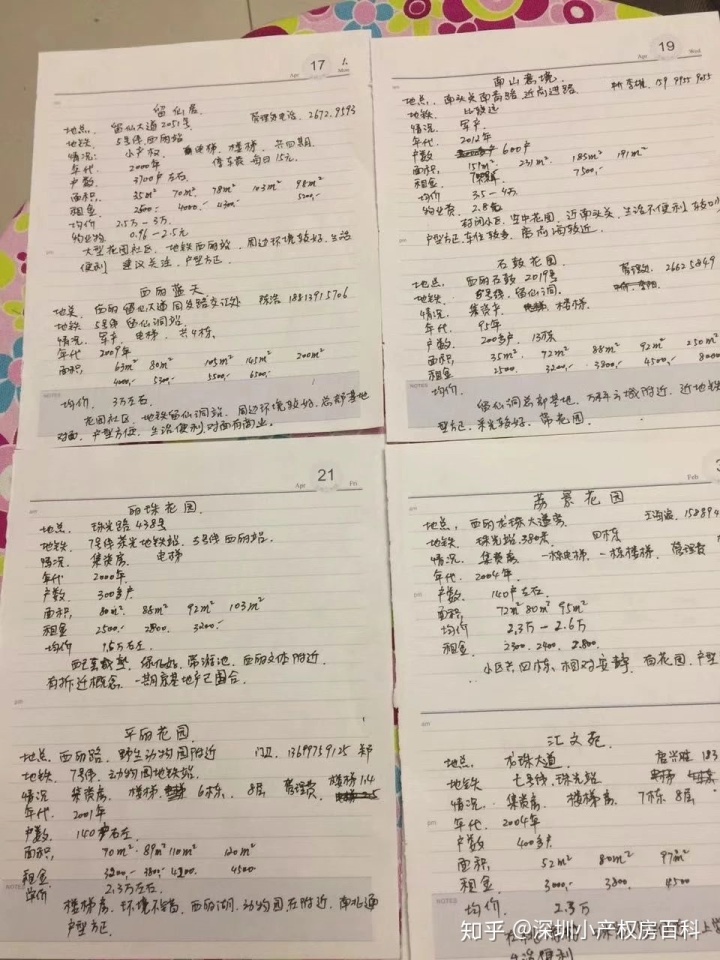 17
Apr
Mon
留仙居
地点. 留仙大道2051号 管理处电话. 2672.9593
地铁. 5号线西丽站
情况: 小产权 电梯. 楼梯. 共四期
年代. 2000年 停车费 每日15元.
户数. 3700户左右
面积. 35m² 70m² 78m² 103m² 98m²
租金. 2600.- 4000.- 4300.-
均价 2.5万-3万.
物业物 0.96-2.5元
大型花园社区. 地铁西丽站. 周边环境较好. 生活
便利 建议关注. 户型方正.
西丽蓝天
地点. 西丽留仙大道同发路交汇处 18813915706
地铁. 5号线 留仙洞站.
情况. 军产. 电梯. 共4栋.
年代 2009年
面积. 63m² 80m² 105m² 145m² 200m²
4000.- 5300.- 5500.- 6500.-
NOTES
均价. 3万左右.
花园社区. 地铁留仙洞站. 周边环境较好. 总部基地
对面. 户型方便. 生活便利. 对面有商业.
19
Apr
Wed
南山意境.
地点. 南头关南商路 近内进路
地铁. 比较远
情况. 军产.
年代. 2012年
户数. 600户
面积. 159m² 231m² 185m² 191m²
租金. 7500.-
均价 3.5-4万
物业费. 2.8元
封闭小区. 空中花园. 近南头关. 生活不便利.
户型方正. 车位较多. 离内海较近.
石鼓花园.
地点. 西丽石鼓2019号 管理处. 2662
地铁. 5号线. 留仙洞.
情况. 集资房 楼梯.
年代. 95年.
户数. 200多户. 13栋
面积. 35m² 72m² 88m² 92m² 250m²
租金 2500 3200.- 3800.- 4500.- 8000
NOTES
均价.
留仙洞总部基地. 万科云城附近. 近地铁
型方正. 采光较好. 带花园.
21
Apr
Fri
丽珠花园.
地点. 珠光路438号
地铁. 7号线茶光地铁站. 5号线西丽站.
情况. 集资房. 电梯
年代. 2000年.
户数. 300多户
面积. 80m² 88m² 92m² 103m²
租金 2500.- 2800. 3200.-
均价 1.5万左右.
绿化好. 带游池. 西丽文体附近.
有拆迁概念. 一期房基地产已围合.
am
pm
平丽花园.
地点. 西丽路. 野生动物园附近 门卫. 13699759125 郑
地铁. 7号线. 动物园地铁站.
情况 集资房. 楼梯. 6栋. 8层 管理费. 楼梯1.4
年代. 2001年.
户数. 140户左右
面积. 70m² 89m² 110m² 120m²
租金 3200.- 3800.- 4200 4500
NOTES
单价 2.3万左右.
楼梯房. 环境不错. 西丽湖. 动物园在附近. 南北通
户型方正.
Feb
荔景花园
地点. 西丽龙珠大道旁. 15889
地铁. 珠光站380米. 四栋
情况. 集资房. 一栋电梯. 一栋楼梯. 管理费
年代. 2004年.
户数. 140户左右.
面积. 72m² 80m² 95m²
均价 2.3万-2.6万
租金. 2300. 2400. 2800.
小区共四栋. 相对安静. 有花园. 户型
pm
汇文苑.
地点. 龙珠大道. 183
地铁 七号线. 珠光站
情况. 集资房. 楼梯房. 7栋 8层
年代. 2004年
户数 400多户
面积 52m² 80m² 97m²
租金 3000.- 3800. 4500
NOTES
均价. 2.3万
生活便利
知乎 @深圳小产权房百科